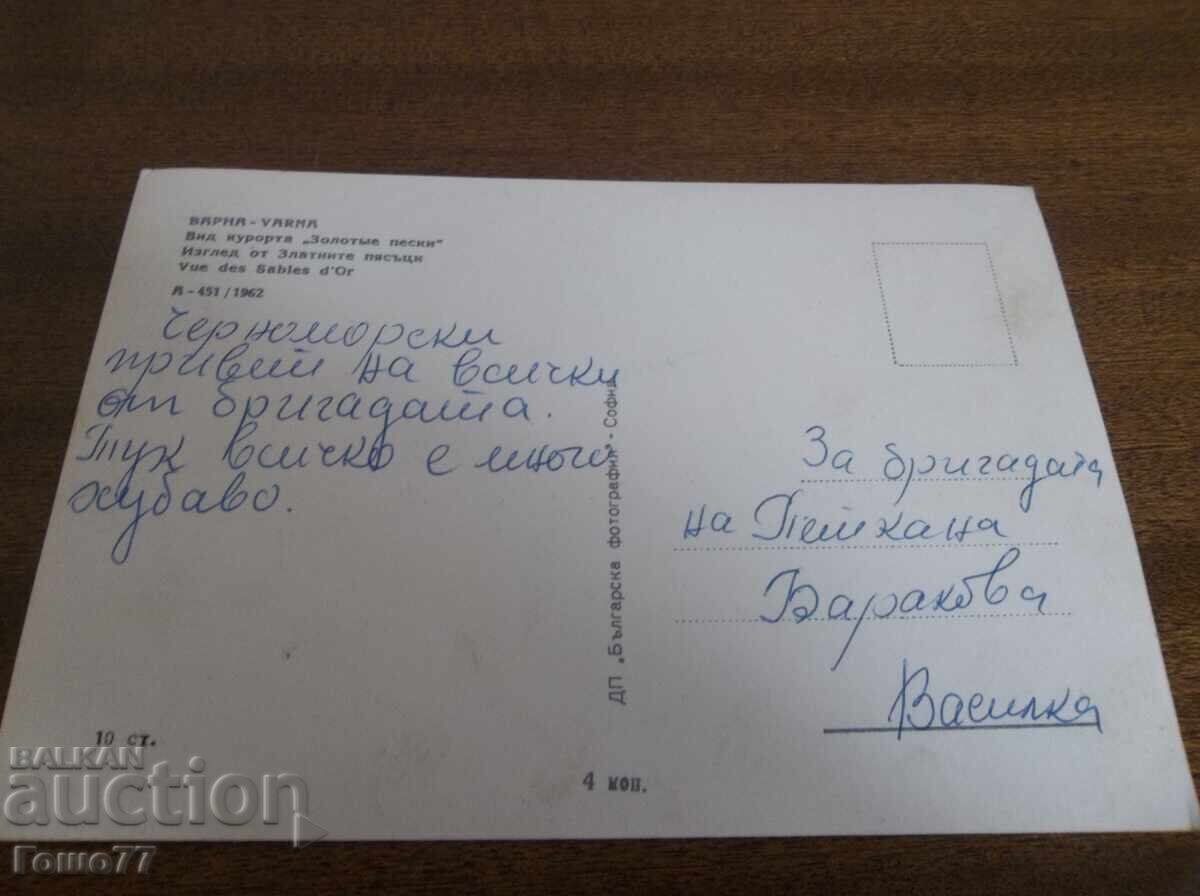 ВАРНА - VARNA
Вид курорта „Золотые пески"
Изглед от Златните пясъци
Vue des Sables d'Or
А - 451 / 1962
Черноморски
привет на всички
от бригадата.
Тук всичко е много
хубаво.
10 ст.
ДП „Българска фотография" - София
4 коп.
За бригадата
на
Баракова
Василка
BALKAN
auction
Гошо77